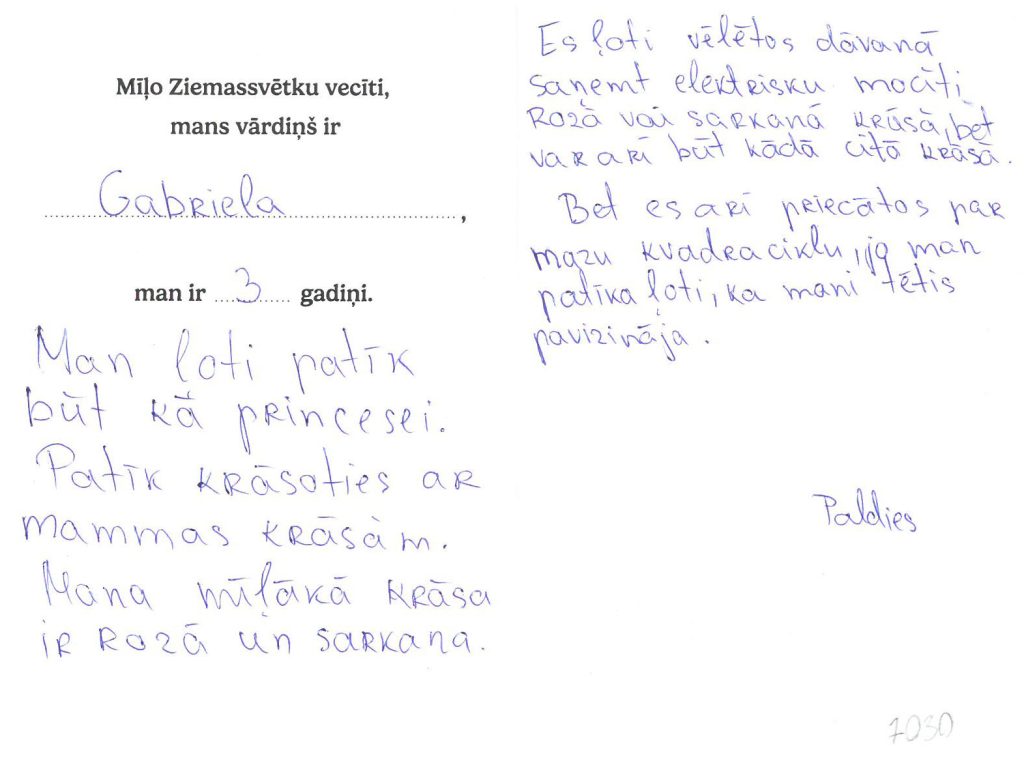 Mīļo Ziemassvētku vecīti,
mans vārdiņš ir
Gabriela,
man ir 3 gadiņi.
Man ļoti patīk
būt kā princesei.
Patīk krāsoties ar
mammas krāsām.
Mana mīļākā krāsa
ir rozā un sarkana.
Es ļoti vēlētos dāvanā
saņemt elektrisku mocīti
Rozā vai sarkanā krāsā, bet
var arī būt kādā citā krāsā.
Bet es arī priecātos par
mazu kvadraciklu, jo man
patīka ļoti, ka mani tētis
pavizināja.
Paldies
7030